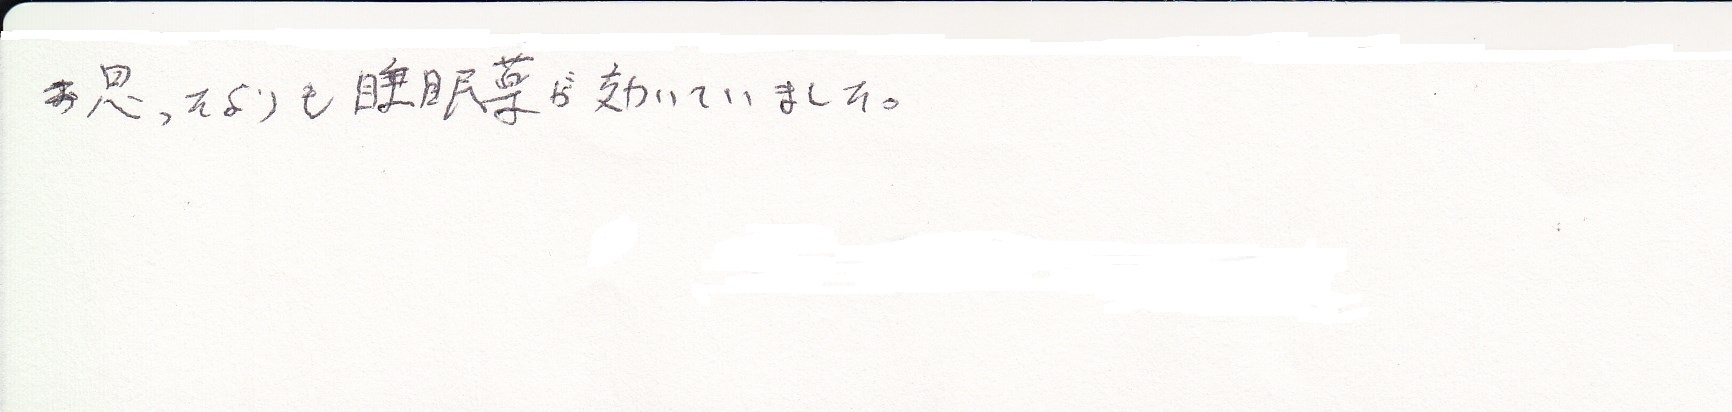 思ったよりも睡眠薬が効いていました。